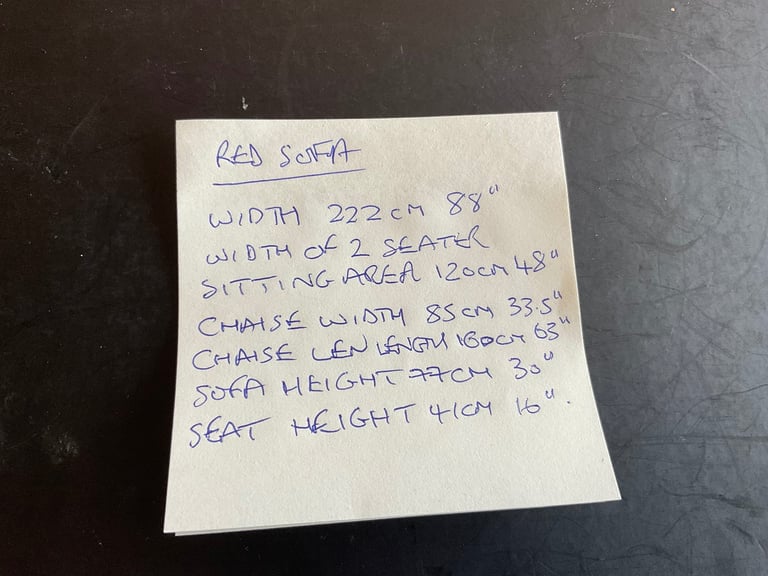 RED SOFA
WIDTH 222CM 88"
WIDTH OF 2 SEATER
SITTING AREA 120CM 48"
CHAISE WIDTH 85CM 33.5"
CHAISE LEN LENGTH 160CM 63"
SOFA HEIGHT 77CM 30"
SEAT HEIGHT 41CM 16".